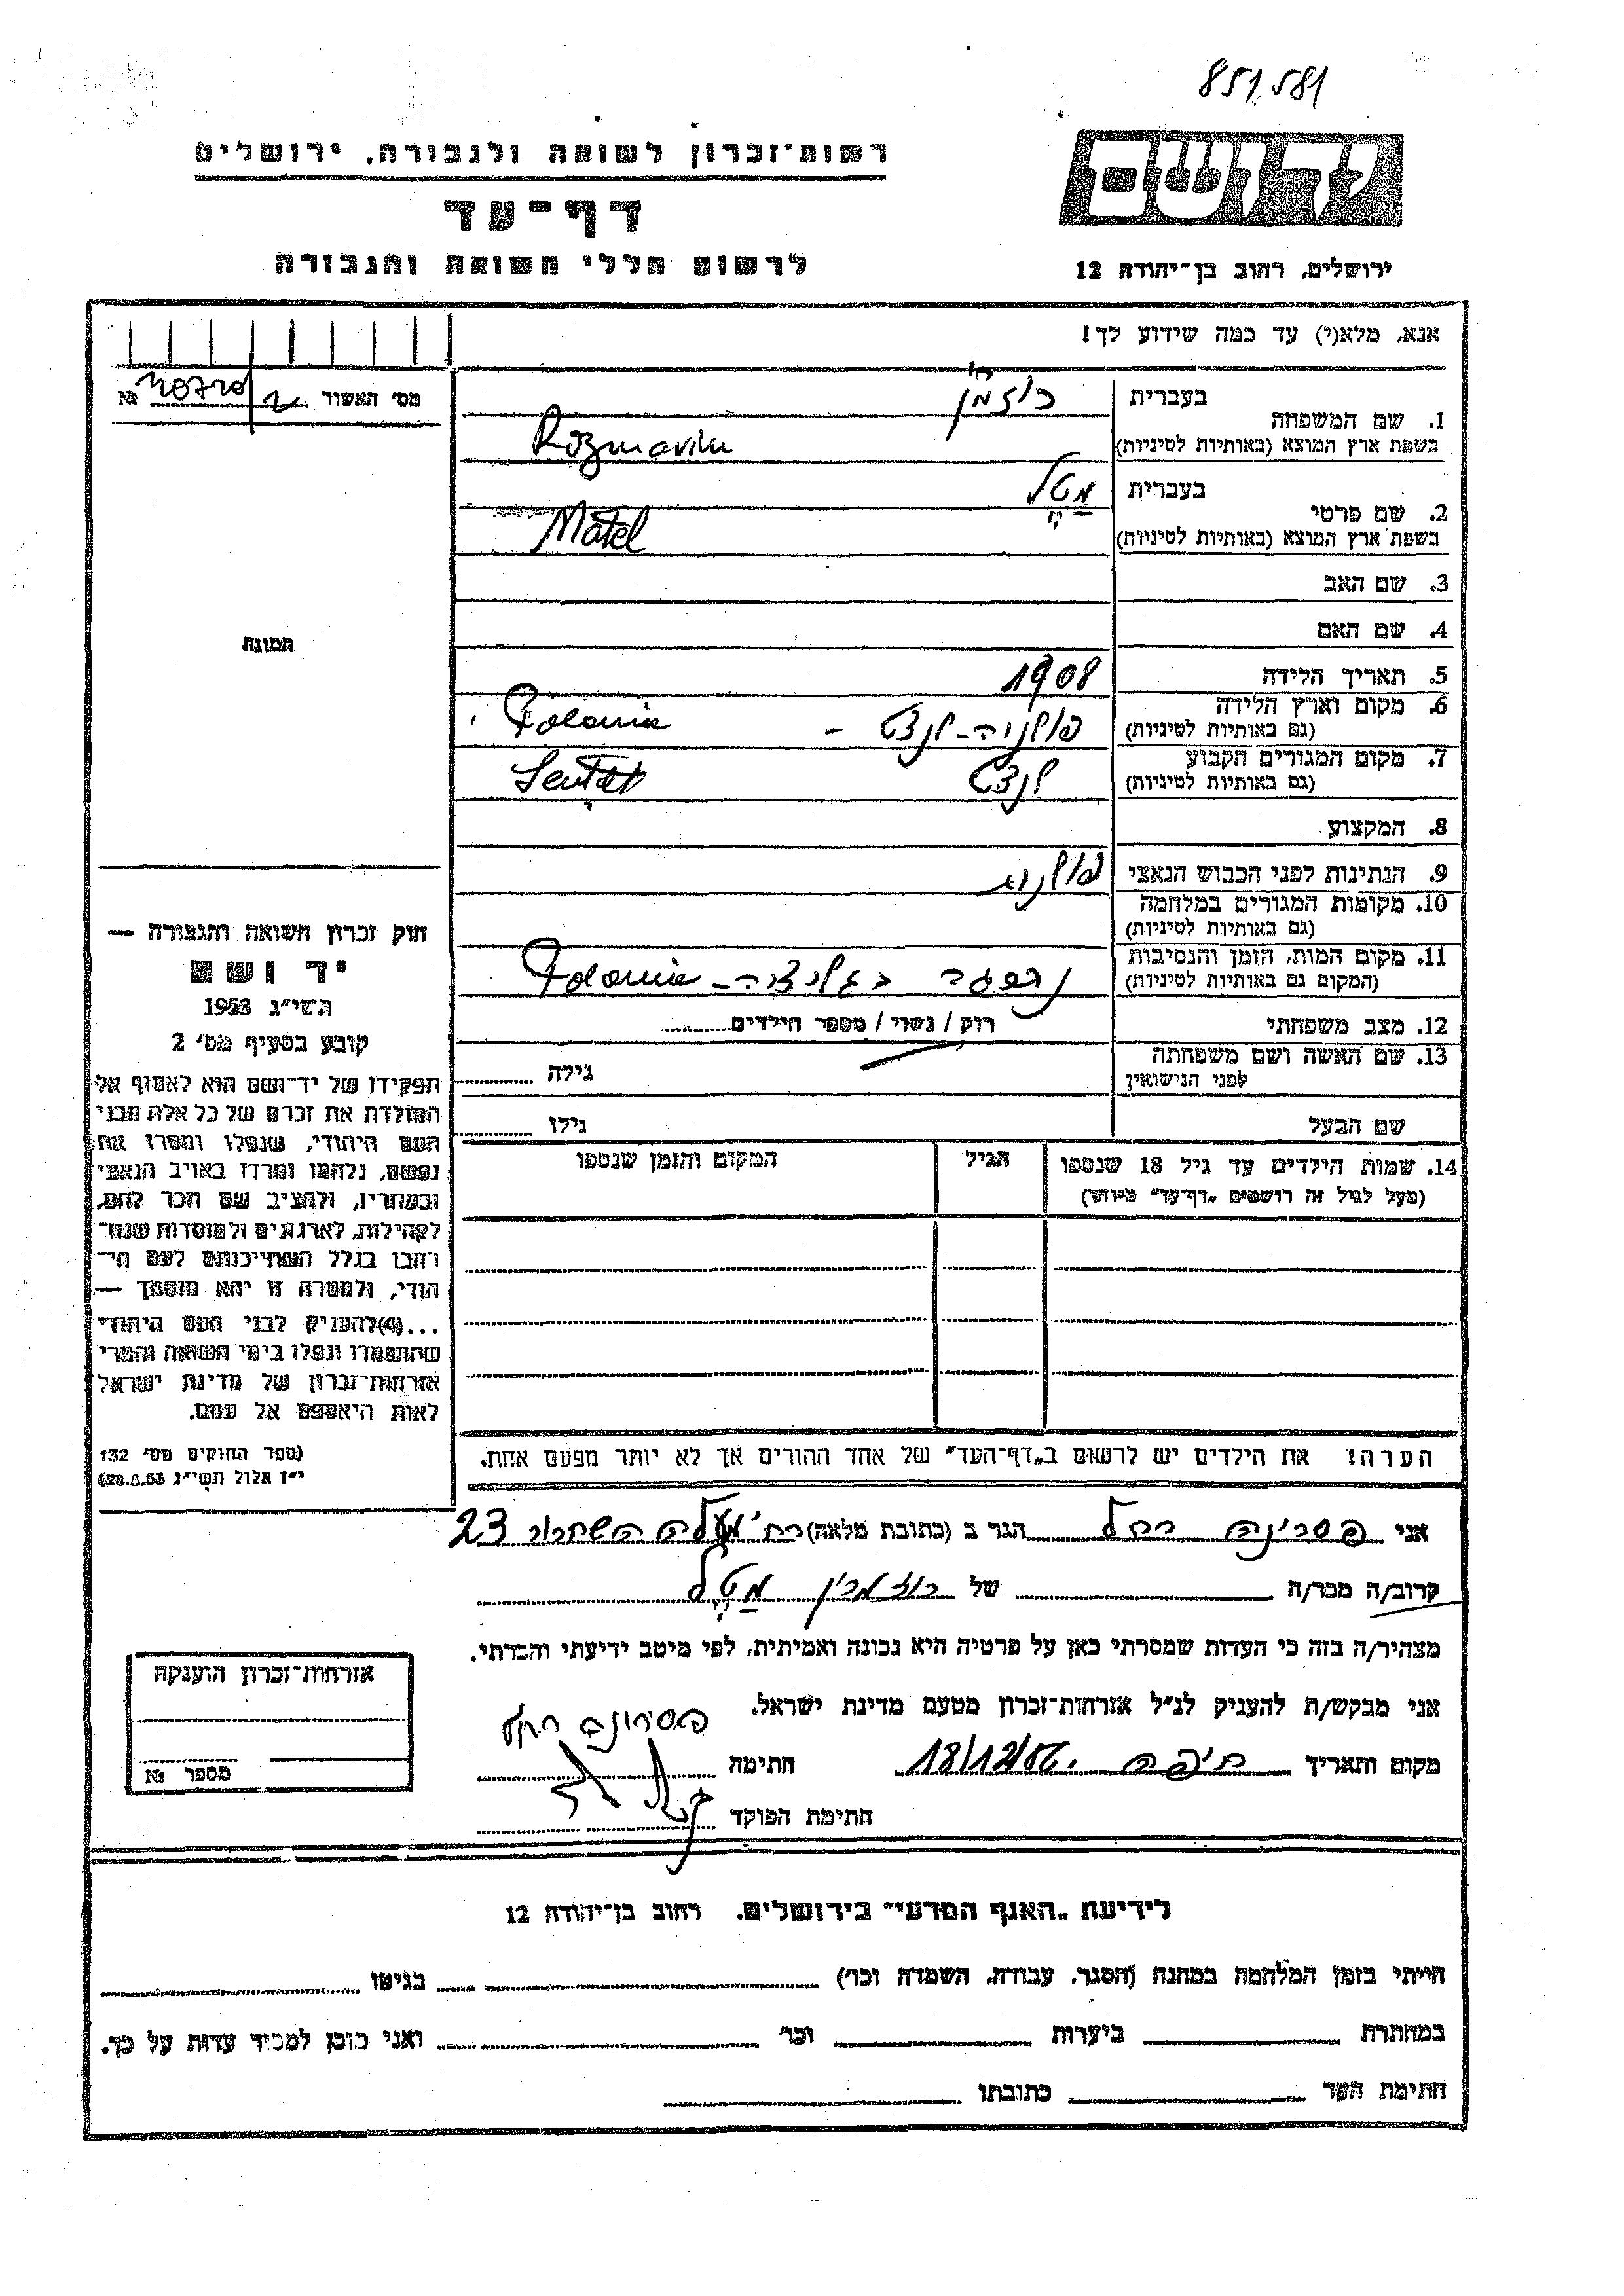 851.581
רשות־זכרון לשואה ולגבורה, ירושלים
דף־עד
לרשום חללי השואה והגבורה
יד ושם
ירושלים, רחוב בן־יהודה 12
אנא, מלא(י) עד כמה שידוע לך!
מס׳ האשור №
בעברית
1. שם המשפחה
בשפת ארץ המוצא (באותיות לטיניות)
בעברית מטל
2. שם פרטי
בשפת ארץ המוצא (באותיות לטיניות) Matel
3. שם האב
4. שם האם
5. תאריך הלידה 1908
6. מקום וארץ הלידה
(גם באותיות לטיניות) פולניה - לנצט - Polania
7. מקום המגורים הקבוע
(גם באותיות לטיניות) לנצט
8. המקצוע
9. הנתינות לפני הכבוש הנאצי פולנית
10. מקומות המגורים במלחמה
(גם באותיות לטיניות)
11. מקום המות, הזמן והנסיבות
(המקום גם באותיות לטיניות) נספה בגליציה - Polania
12. מצב משפחתי רוק / נשוי / מספר הילדים
13. שם האשה ושם משפחתה
לפני הנישואין גילה
שם הבעל גילו
14. שמות הילדים עד גיל 18 שנספו
(מעל לגיל זה רושמים „דף־עד” מיוחד)
הגיל
המקום והזמן שנספו
הערה: את הילדים יש לרשום ב„דף־העד” של אחד ההורים אך לא יותר מפעם אחת.
תמונה
חוק זכרון השואה והגבורה —
יד ושם
תשי״ג 1953
קובע בסעיף מס׳ 2
תפקידו של יד־ושם הוא לאסוף אל
המולדת את זכרם של כל אלה מבני
העם היהודי, שנפלו ומסרו את
נפשם, נלחמו ומרדו באויב הנאצי
ובעוזריו, ולהציב שם וזכר להם,
לקהילות, לארגונים ולמוסדות שנח־
רבו בגלל השתייכותם לעם הי־
הודי, ולמטרה זו יהא מוסמך —
...(4)להעניק לבני העם היהודי
שהושמדו ונפלו בימי השואה והמרי
אזרחות־זכרון של מדינת ישראל
לאות היאספם אל עמם.
(ספר החוקים מס׳ 132
י״ז אלול תשי״ג 28.8.53)
אני רחל הגר ב (כתובת מלאה) רח׳ מעלה השחרור 23
קרוב/ה מכר/ה של רוזמרין מטל
מצהיר/ה בזה כי העדות שמסרתי כאן על פרטיה היא נכונה ואמיתית, לפי מיטב ידיעתי והכרתי.
אני מבקש/ת להעניק לנ״ל אזרחות־זכרון מטעם מדינת ישראל.
מקום ותאריך חיפה 18/12/56 חתימה
חתימת הפוקד
אזרחות־זכרון הוענקה
מספר №
לידיעת „האגף המדעי” בירושלים. רחוב בן־יהודה 12
הייתי בזמן המלחמה במחנה (הסגר, עבודה, השמדה וכו׳) בגיטו
במחתרת ביערות וכו׳ ואני מוכן למסור עדות על כך.
חתימת העד כתובתו